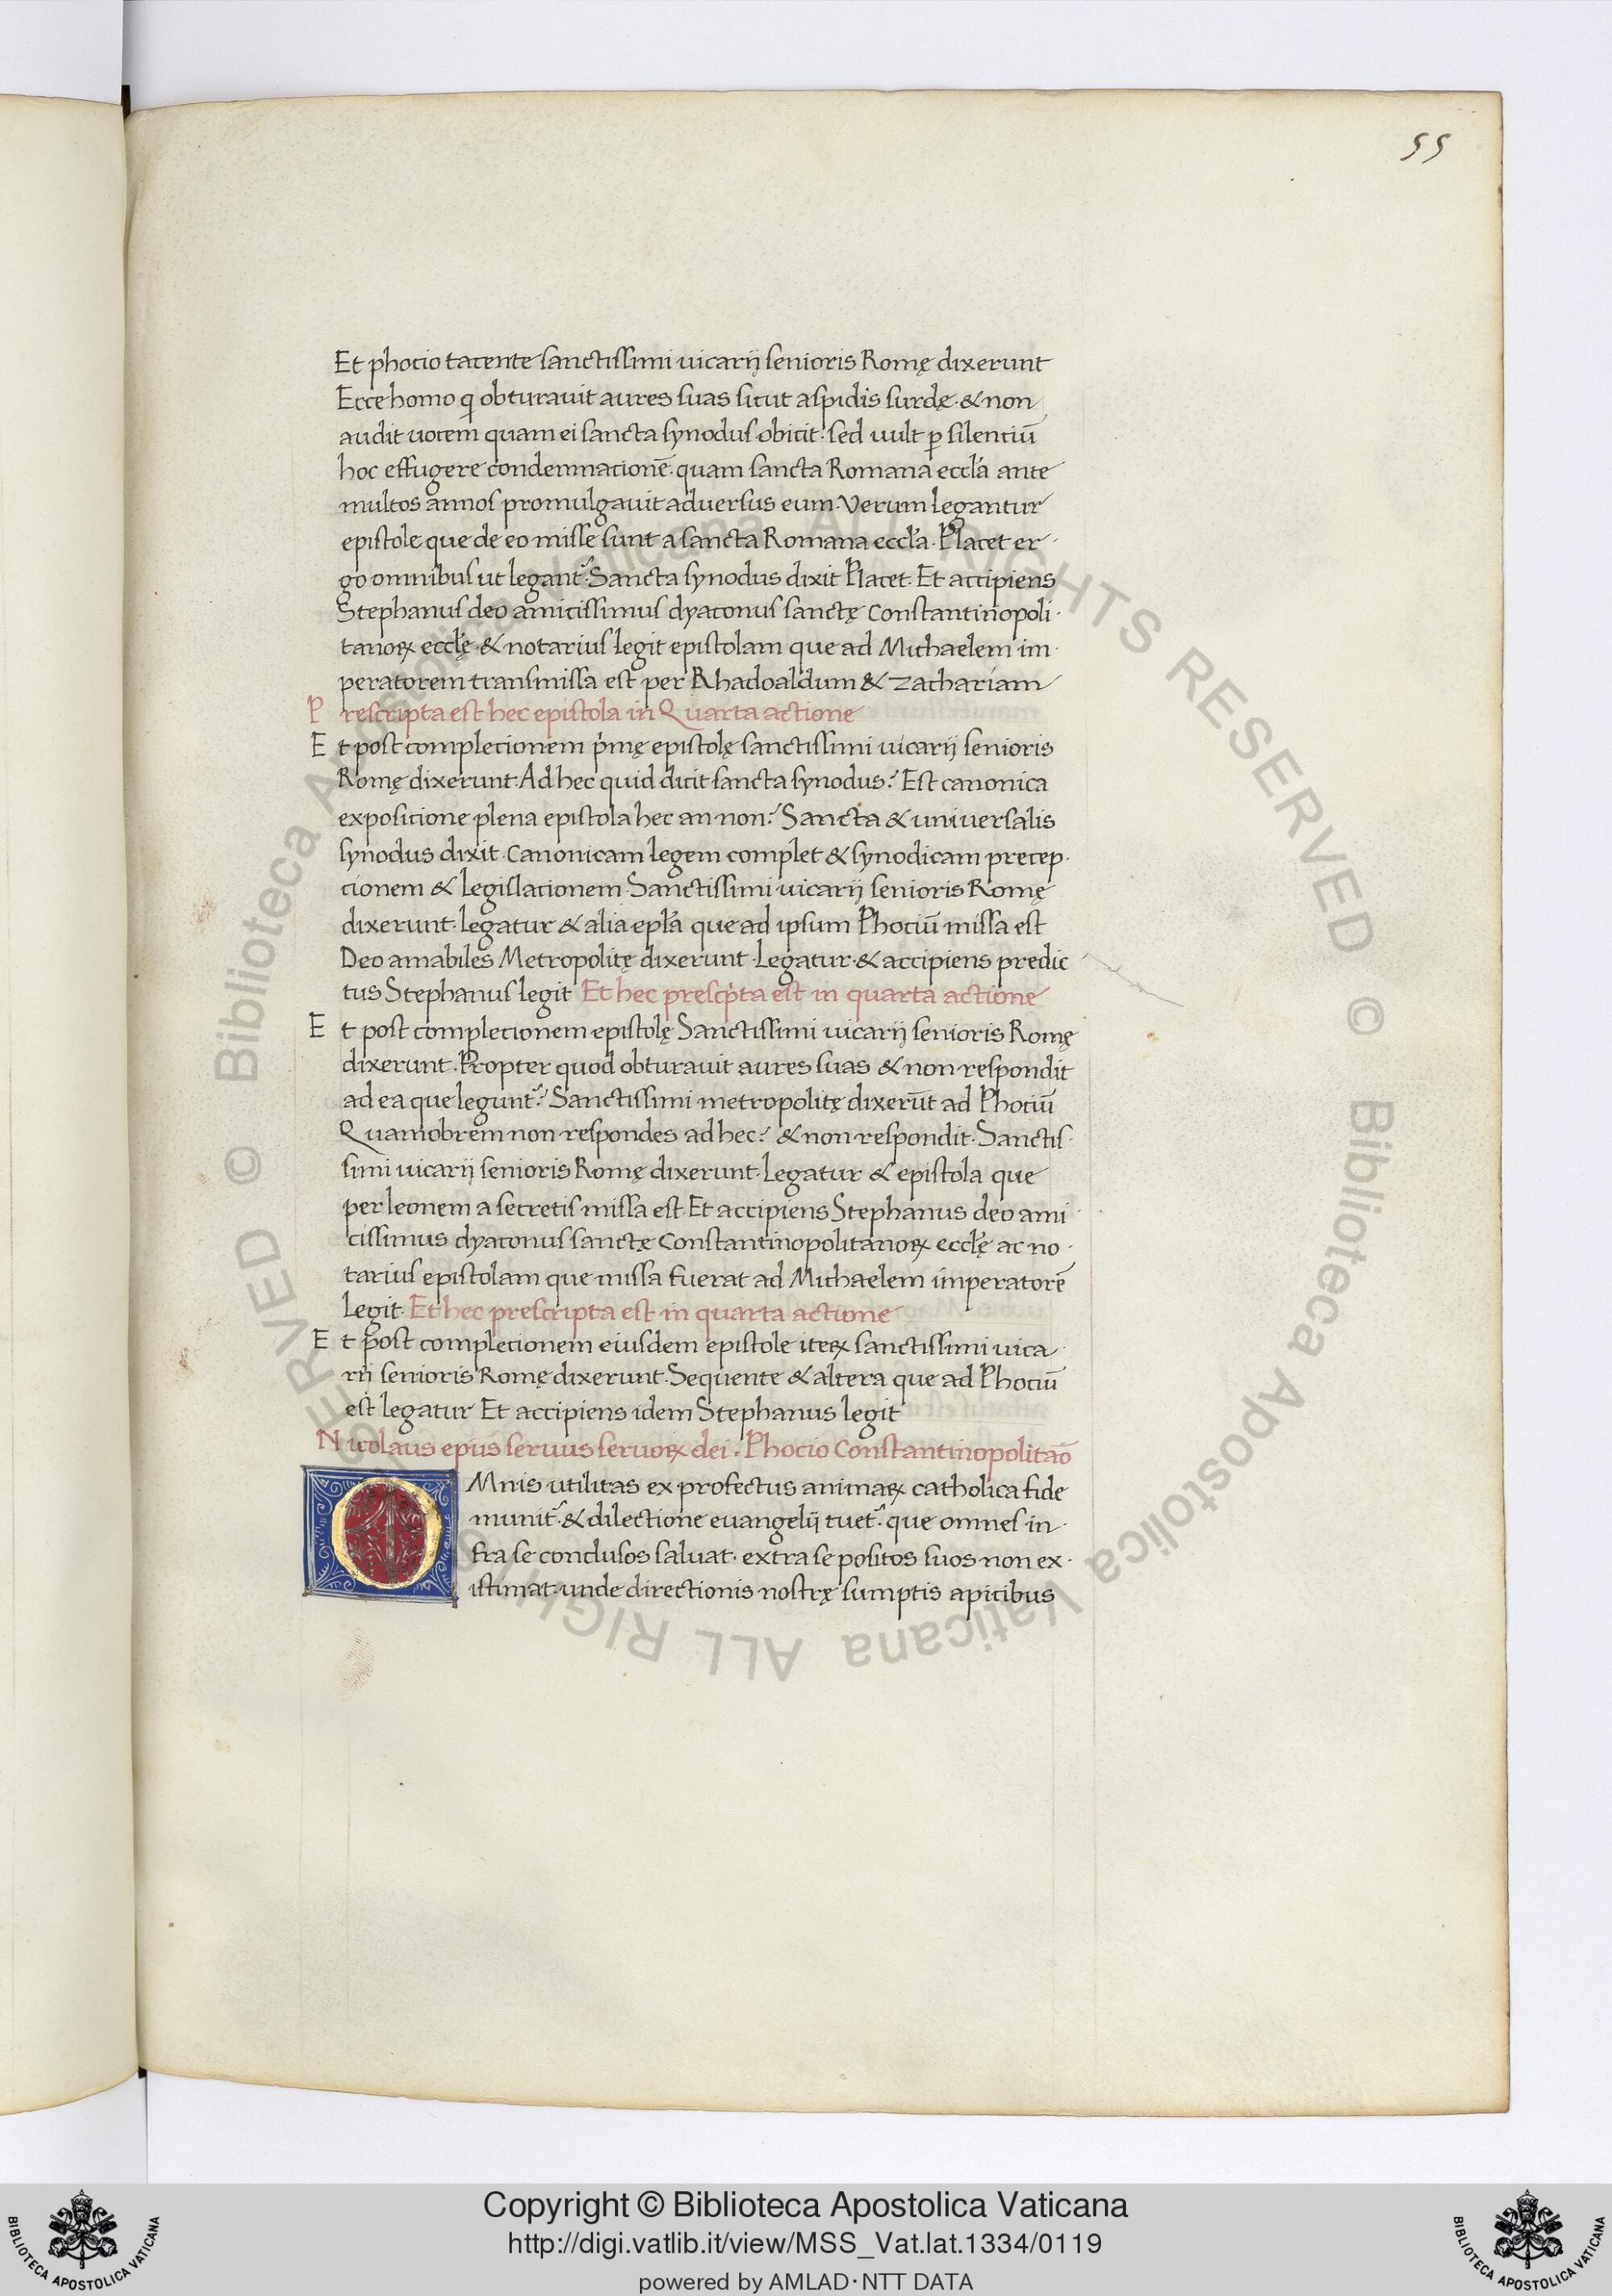 55
Et phocio tacente sanctissimi uicarij senioris Romę dixerunt
Ecce homo q obturauit aures suas sicut aspidis surdę · & non
audit uocem quam ei sancta synodus obicit · sed uult p̱ silentiū
hoc effugere condemnacionē · quam sancta Romana eccl̓a ante
multos annos promulgauit adversus eum · Verum legantur
epistole que de eo misse sunt a sancta Romana eccl̓a · Placet er·
go omnibus ut legant᷑ · Sancta synodus dixit Placet · Et accipiens
Stephanus deo amicissimus dyaconus sanctę Constantinopoli·
tanoꝝ eccl̓ę · & notarius legit epistolam que ad Michaelem im·
peratorem transmissa est per Rhadoaldum & Zachariam
Prescripta est hec epistola in Quarta actione
Et post complecionem p̓mę epistolę sanctissimi uicarij senioris
Romę dixerunt · Ad hec quid dicit sancta synodus? Est canonica
exposicione plena epistola hec an non? Sancta & universalis
synodus dixit · Canonicam legem complet & synodicam precep·
cionem & legislacionem · Sanctissimi uicarij senioris Romę
dixerunt · legatur & alia epl̓a que ad ipsum Phociū missa est
Deo amabiles Metropolitę dixerunt · Legatur · & accipiens predic
tus Stephanus legit Et hec presc̓pta est in quarta actione
Et post complecionem epistolę Sanctissimi uicarij senioris Romę
dixerunt · Propter quod obturauit aures suas & non respondit
ad ea que legunt᷑? Sanctissimi metropolitę dixerūt ad Phociū
Quamobrem non respondes ad hec? & non respondit · Sanctis·
simi uicarij senioris Romę dixerunt · Legatur & epistola que
per leonem a secretis missa est · Et accipiens Stephanus deo ami·
cissimus dyaconus sanctę Constantinopolitanoꝝ eccl̓ę ac no·
tarius epistolam que missa fuerat ad Michaelem imperatorē
legit · Et hec prescripta est in quarta actione
Et post complecionem eiusdem epistole iteꝝ sanctissimi uica·
rii senioris Romę dixerunt · Sequente & altera que ad Phociū
est legatur Et accipiens idem Stephanus legit
Nicolaus ep̄us servus servoꝝ dei · Phocio Constantinopolitāo
OMnis utilitas ex profectus animaꝝ catholica fide
munit᷑ · & dilectione euangelij tuet᷑ · que omnes in·
fra se conclusos saluat · extra se positos suos non ex·
istimat · unde directionis nostrę sumptis apicibus
© Biblioteca Apostolica Vaticana ALL RIGHTS RESERVED © Biblioteca Apostolica Vaticana ALL RIGHTS RESERVED
Copyright © Biblioteca Apostolica Vaticana
http://digi.vatlib.it/view/MSS_Vat.lat.1334/0119
powered by AMLAD·NTT DATA
BIBLIOTECA APOSTOLICA VATICANA
BIBLIOTECA APOSTOLICA VATICANA